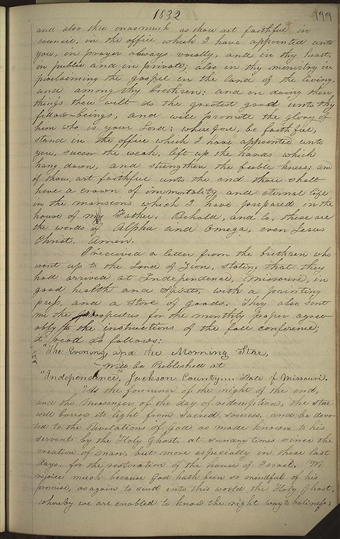 1832 199
and also thou inasmuch as thou art faithful in
council, in the office which I have appointed unto
you, in prayer always vocally, and in thy heart,
in public and in private; also in thy ministry in
proclaiming the gospel in the land of the living,
and among thy brethren: and in doing these
things thou wilt do the greatest good unto thy
fellow-beings, and will promote the glory of
him who is your Lord; wherefore, be faithful,
stand in the office which I have appointed unto
you, succor the weak, lift up the hands which
hang down, and strengthen the feeble knees; and
if thou art faithful unto the end thou shalt
have a crown of immortality and eternal life
in the mansions which I have prepared in the
house of my Father. Behold, and lo, these are
the words of Alpha and Omega, even Jesus
Christ. Amen.
I received a letter from the brethren who
went up to the land of Zion, stating that they
had arrived at Independence, Missouri, in
good health and spirits, with a printing
press, and a store of goods. They also sent
me the prospectus for the monthly paper agree-
ably to the instructions of the fall conference;
it read as follows:
"The Evening and the Morning Star,
will be Published at
"Independence, Jackson County, State of Missouri.
"As the forerunner of the night of the end,
and the Messenger of the day of redemption, the Star
will borrow its light from sacred sources, and be devo-
ted to the revelations of God as made known to his
servants by the Holy Ghost, at sundry times since the
creation of man, but more especially in these last
days, for the restoration of the house of Israel. We
rejoice much because God hath been so mindful of his
promise, as again to send into this world the Holy Ghost,
whereby we are enabled to know the right way to holiness;